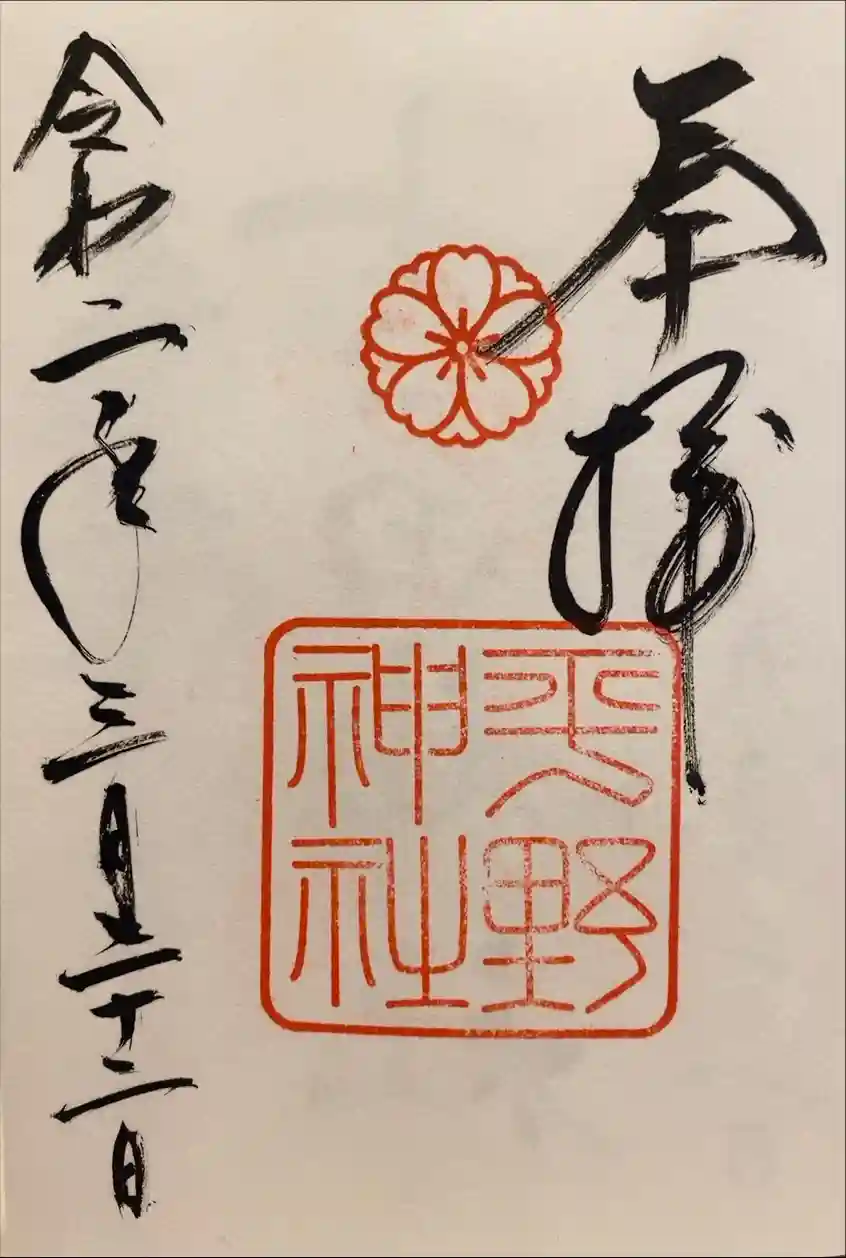 奉拝
平野
神社
令和二年三月二十二日